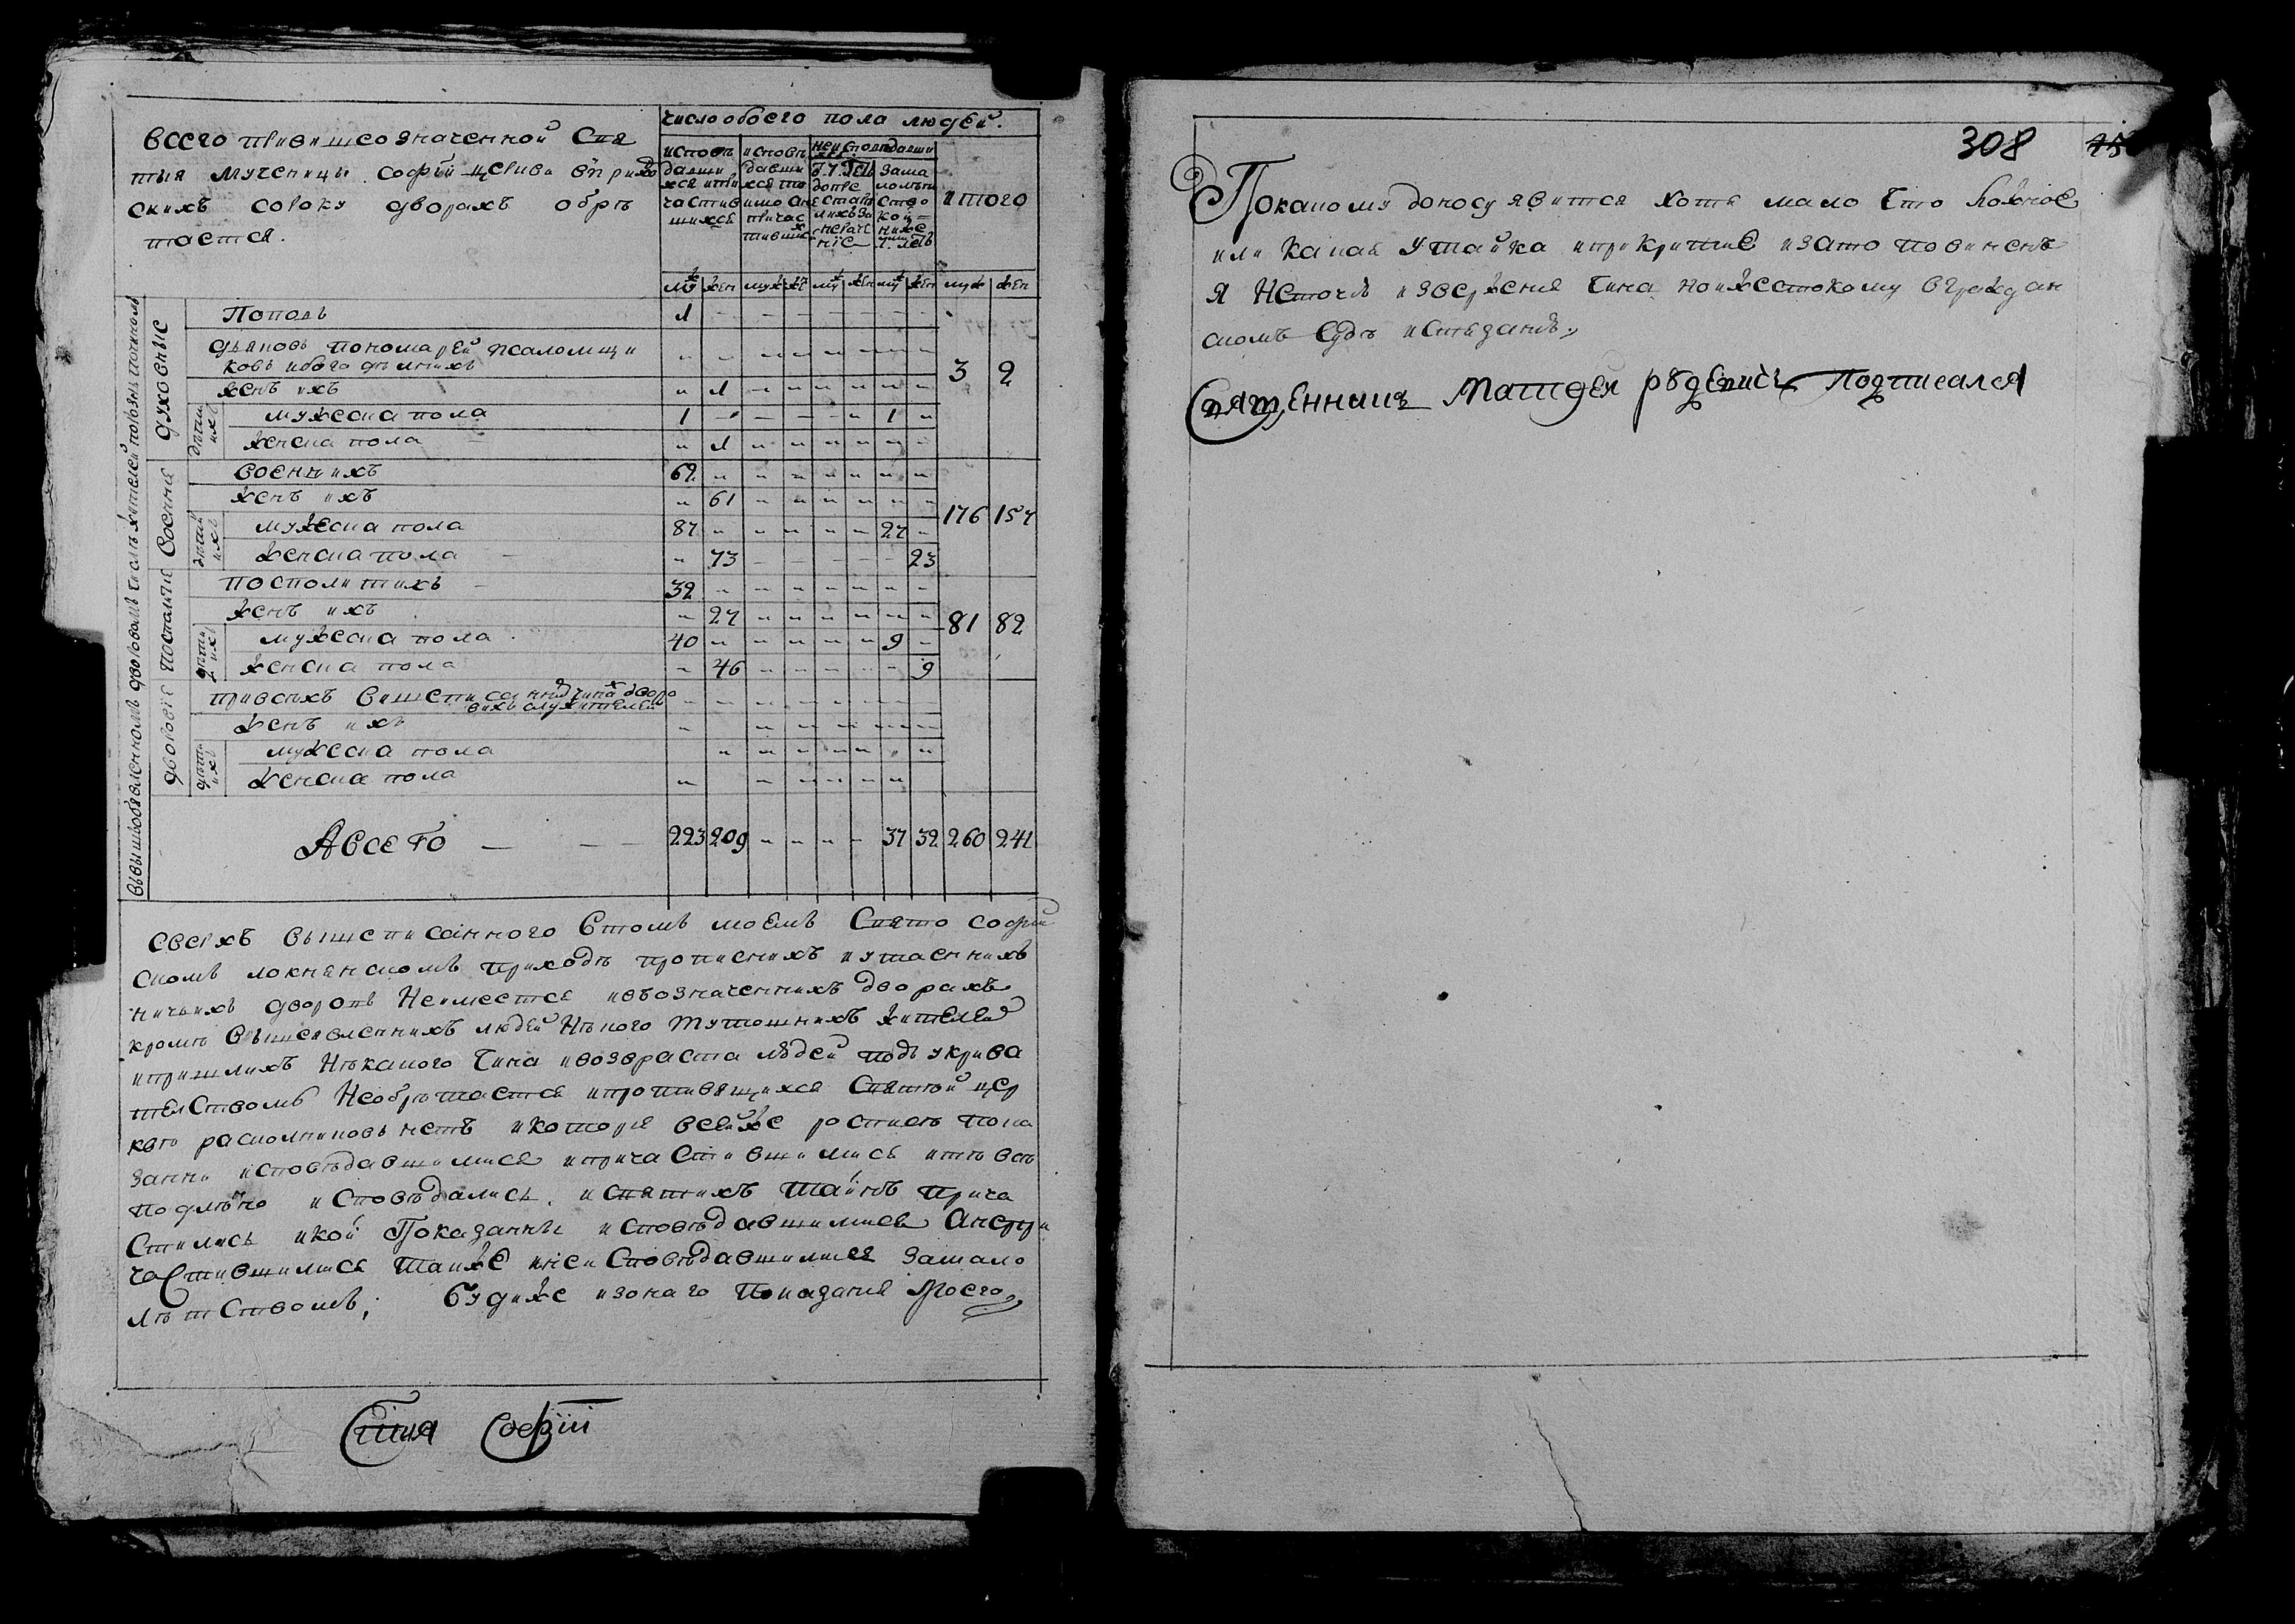 всего при вишеозначенной Свя
тыя мученици софѣи церкви въ прихо
скихъ сороку дворахъ обрѣ
тается.
число обоего пола людей.
исповѣдавшихся и причастившихся
исповѣдавшихся токмо а не причастившихся
неисповѣдавшихся
за малолѣтством кой ниже 7ми лѣтъ
итого
муж жен муж же муж жен муж жен муж жен
духовные
Поповъ 1 3 2
дьяковъ пономарей псаломщи
ковъ и обоего дѣтних
женъ ихъ 1
дѣтей ихъ
мужеска пола 1 1
женска пола 1
военних
военнихъ 62 176 157
женъ ихъ 61
дѣтей ихъ
мужеска пола 87 27
женска пола 73 23
посполитихъ 32 81 82
женъ ихъ 27
дѣтей ихъ
мужеска пола 40 9
женска пола 46 9
дворовіе
при всѣхъ вишеписанных чинах дворо
вихъ служителей
женъ ихъ
дѣтей ихъ
мужеска пола
женска пола
А всего 223 209 37 32 260 241
сверхъ вышеписанного в томъ моемъ Свято софий
скомъ локненскомъ приходѣ прописнихъ и утаеннихъ
ничьихъ дворовъ Неимеется и въ означеннихъ дворахъ
кромѣ вышеявленнихъ людей Нѣкого тутошнихъ жителей
и пришлихъ Нѣкакого Чина и возраста людей подъ укрива
телствомъ Необрѣтается и противящихся Святой цер
кви расколниковъ нетъ и которіе всей же росписѣ пока
занни исповѣдавшимися и причастившимись и тѣ всѣ
подлѣно исповѣдались и святихъ Таинъ прича
стились и кой Показаннѣ исповѣдавшимися Анепри
частившимися также и неисповѣдавшимися замало
лѣтством; Буди же изонаго Показания Моего
Стия Софіи
308
Покакому доносу явится хотя мало Что ложное
или какая Утайка и прикритие и за то повиненъ
я Неточѣю извержения Чина но и жестокому вграждан
скомъ Судѣ истязаню
Священникъ Матфей Подписался